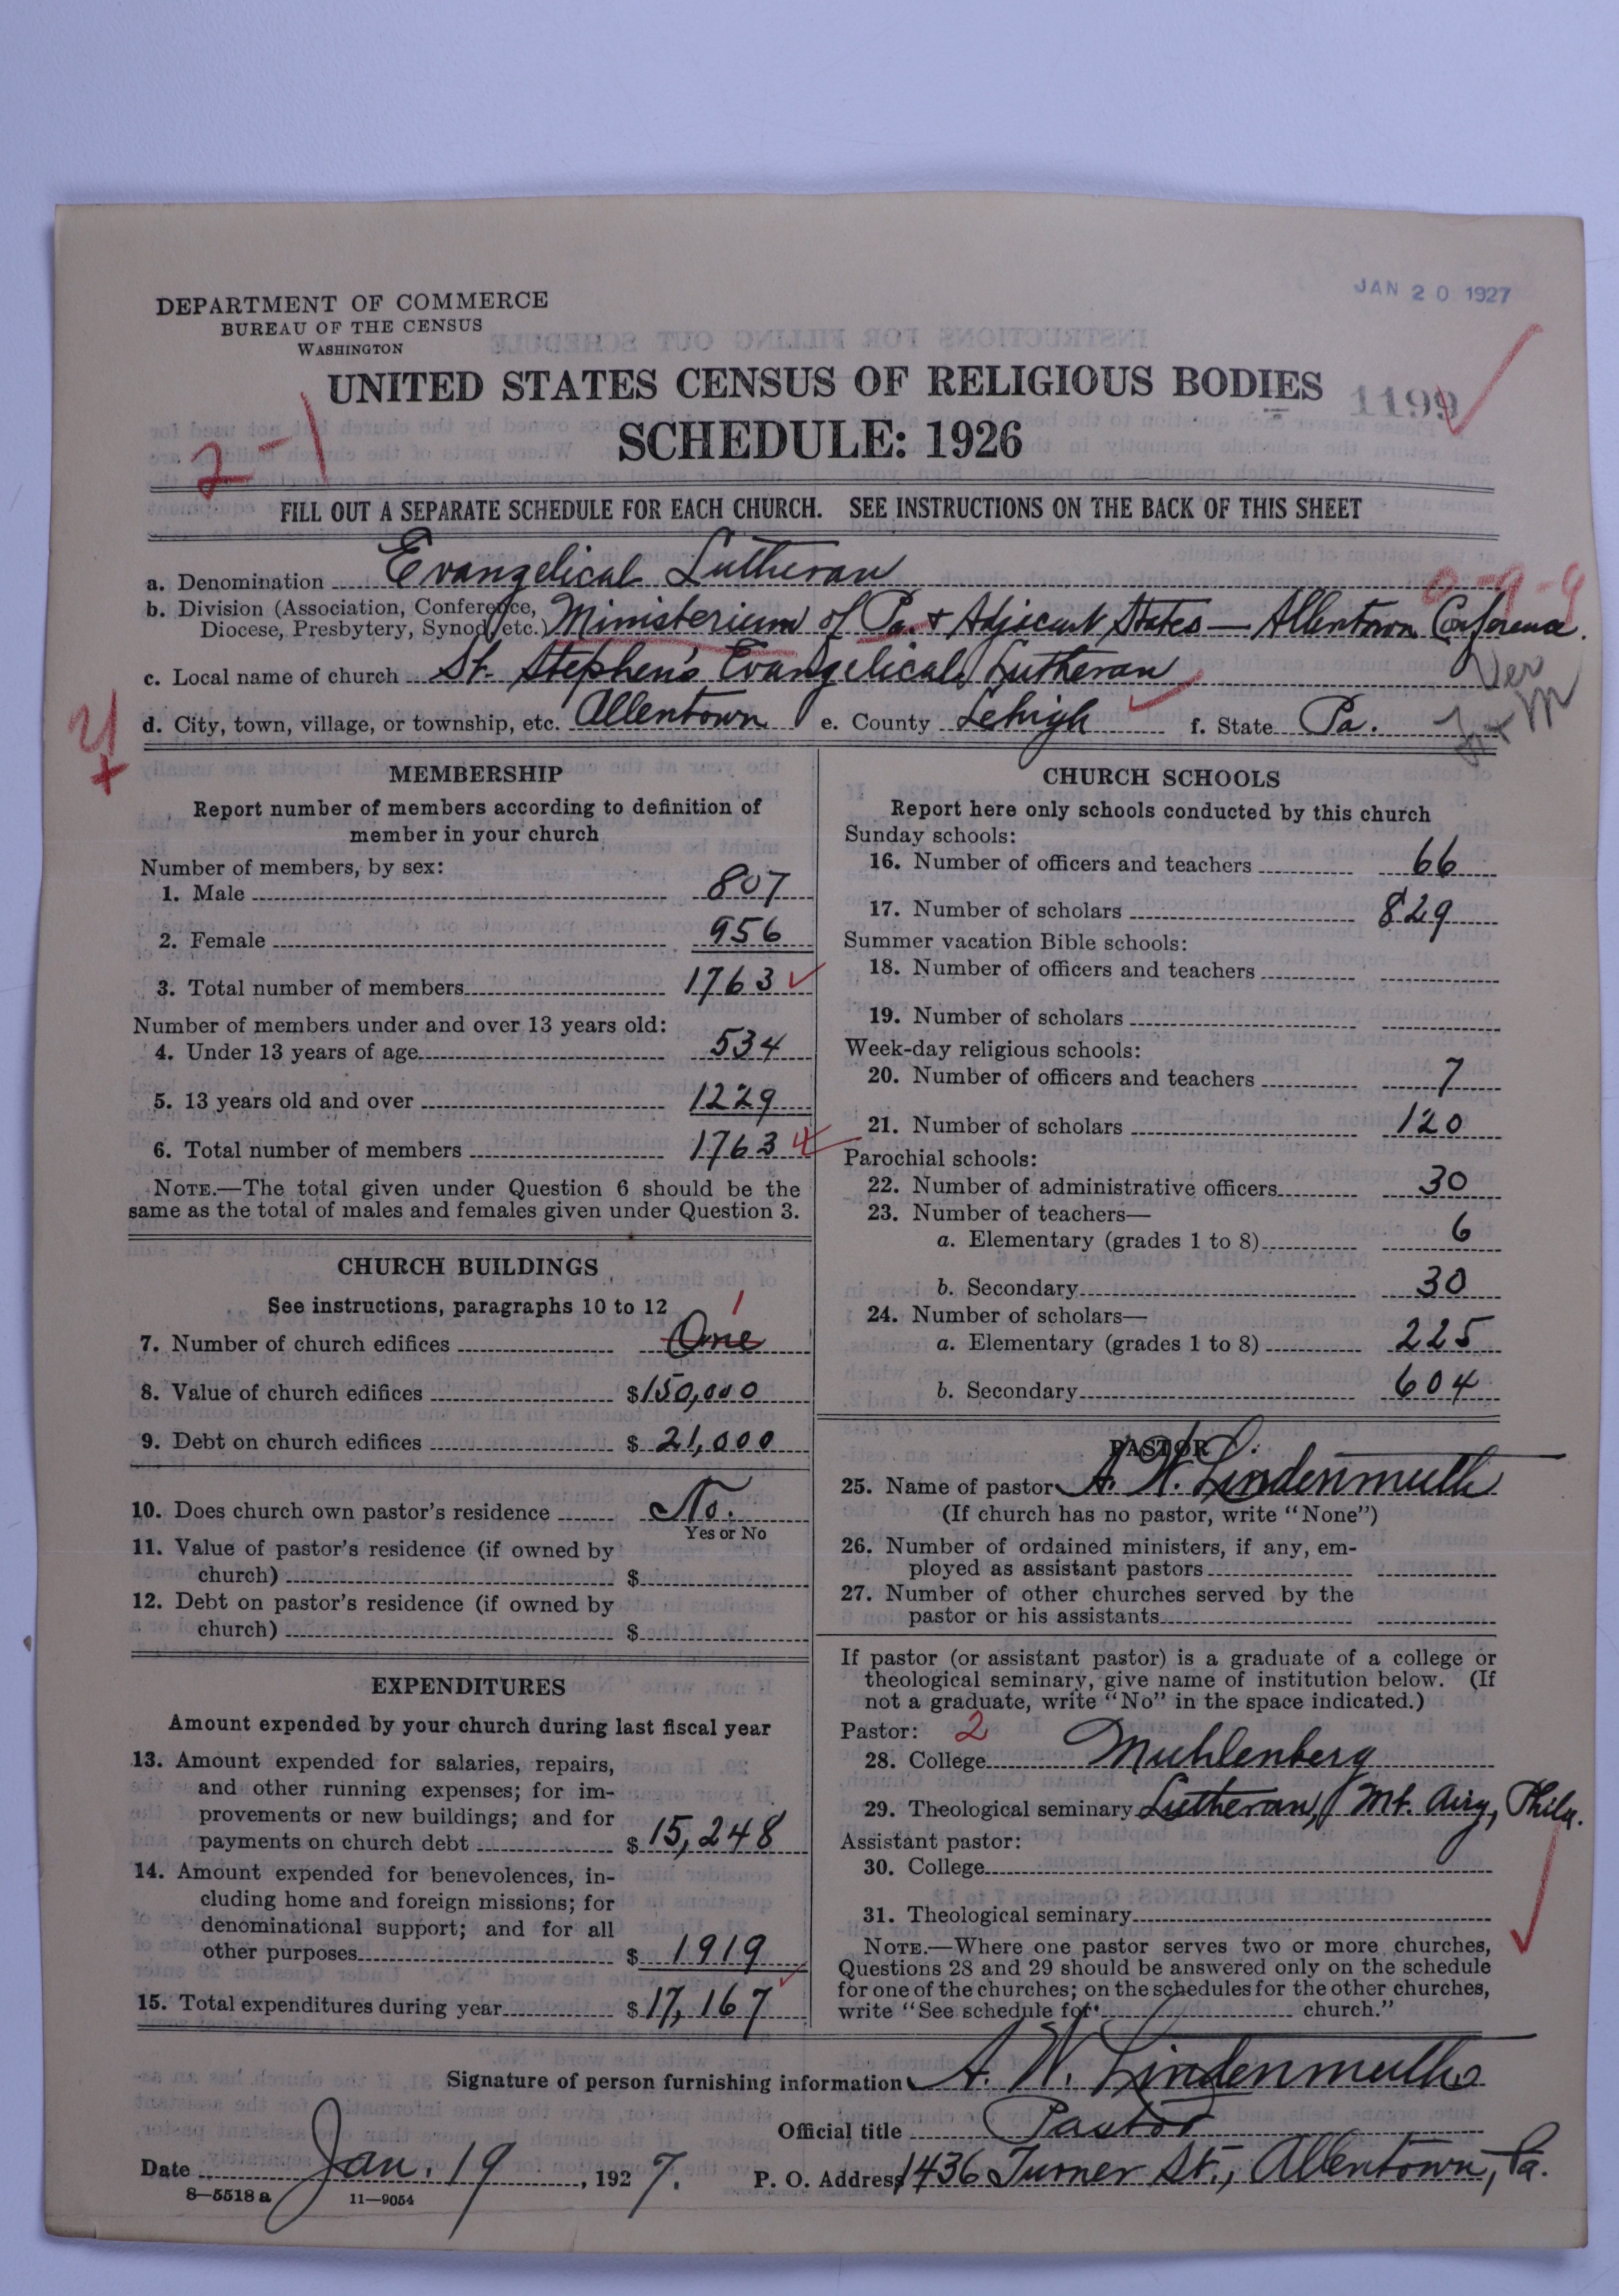 JAN 20 1927
DEPARTMENT OF COMMERCE
BUREAU OF THE CENSUS
WASHINGTON
UNITED STATES CENSUS OF RELIGIOUS BODIES
1199
SCHEDULE: 1926
2-1
FILL OUT A SEPARATE SCHEDULE FOR EACH CHURCH. SEE INSTRUCTIONS ON THE BACK OF THIS SHEET
a. Denomination Evangelical Lutheran
0-9-9
b. Division (Association, Conference, Diocese, Presbytery, Synod, etc.) Ministerium of Pa. & Adjacent States — Allentown Conference.
c. Local name of church St. Stephen's Evangelical Lutheran
Ver
d. City, town, village, or township, etc. Allentown e. County Lehigh f. State Pa.
MEMBERSHIP
Report number of members according to definition of
member in your church
Number of members, by sex:
1. Male 807
2. Female 956
3. Total number of members 1763
Number of members under and over 13 years old:
4. Under 13 years of age 534
5. 13 years old and over 1229
6. Total number of members 1763
NOTE.—The total given under Question 6 should be the
same as the total of males and females given under Question 3.
CHURCH BUILDINGS
See instructions, paragraphs 10 to 12
1
7. Number of church edifices One
8. Value of church edifices $150,000
9. Debt on church edifices $21,000
10. Does church own pastor's residence No.
Yes or No
11. Value of pastor's residence (if owned by
church) $
12. Debt on pastor's residence (if owned by
church) $
EXPENDITURES
Amount expended by your church during last fiscal year
13. Amount expended for salaries, repairs,
and other running expenses; for im-
provements or new buildings; and for
payments on church debt $15,248
14. Amount expended for benevolences, in-
cluding home and foreign missions; for
denominational support; and for all
other purposes $1919
15. Total expenditures during year $17,167
CHURCH SCHOOLS
Report here only schools conducted by this church
Sunday schools:
16. Number of officers and teachers 66
17. Number of scholars 829
Summer vacation Bible schools:
18. Number of officers and teachers
19. Number of scholars
Week-day religious schools:
20. Number of officers and teachers 7
21. Number of scholars 120
Parochial schools:
22. Number of administrative officers 30
23. Number of teachers—
a. Elementary (grades 1 to 8) 6
b. Secondary 30
24. Number of scholars—
a. Elementary (grades 1 to 8) 225
b. Secondary 604
PASTOR
25. Name of pastor A. W. Lindenmuth
(If church has no pastor, write "None")
26. Number of ordained ministers, if any, em-
ployed as assistant pastors
27. Number of other churches served by the
pastor or his assistants
If pastor (or assistant pastor) is a graduate of a college or
theological seminary, give name of institution below. (If
not a graduate, write "No" in the space indicated.)
Pastor: 2
28. College Muhlenberg
29. Theological seminary Lutheran, Mt. Airy, Phila.
Assistant pastor:
30. College
31. Theological seminary
NOTE.—Where one pastor serves two or more churches,
Questions 28 and 29 should be answered only on the schedule
for one of the churches; on the schedules for the other churches,
write "See schedule for church."
Signature of person furnishing information A. W. Lindenmuth
Official title Pastor
Date Jan. 19, 1927. P. O. Address 1436 Turner St., Allentown, Pa.
8—5518 a 11—9054